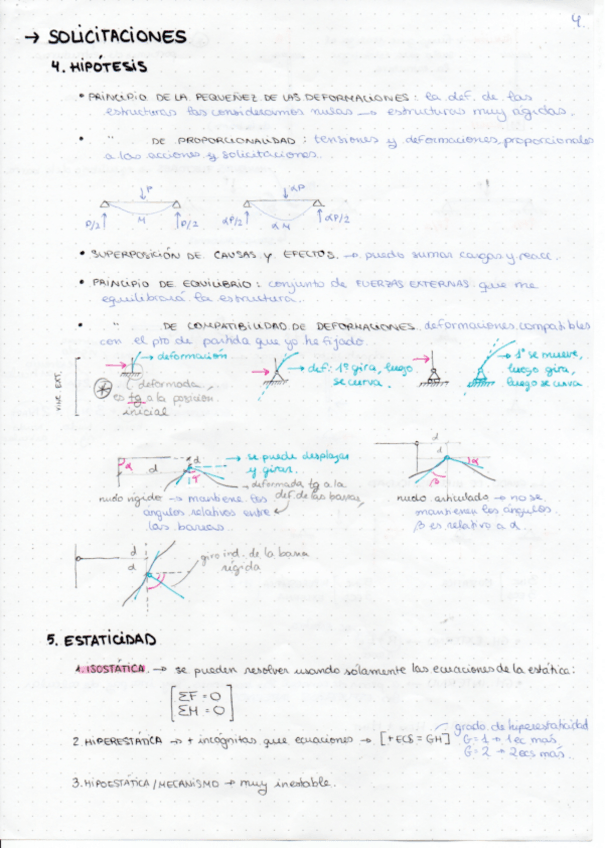 4.
→ SOLICITACIONES
4. HIPÓTESIS
• PRINCIPIO DE LA PEQUEÑEZ DE LAS DEFORMACIONES: la def. de las
estructuras las consideramos nulas → estructuras muy rígidas.
• " DE PROPORCIONALIDAD: tensiones y deformaciones, proporcionales
a las acciones y solicitaciones.
P αP
P/2 M P/2 αP/2 αM αP/2
• SUPERPOSICIÓN DE CAUSAS Y EFECTOS. → puedo sumar cargas y reacc.
• PRINCIPIO DE EQUILIBRIO: conjunto de FUERZAS EXTERNAS que me
equilibrará la estructura.
• " DE COMPATIBILIDAD DE DEFORMACIONES. deformaciones compatibles
con el pto de partida que yo he fijado.
VINC. EXT.
→ deformación
deformada,
es tg a la posición
inicial
→ def: 1º gira, luego
se curva.
→ 1º se mueve,
luego gira,
luego se curva
α d d
→ se puede desplazar
y girar.
→ deformada tg a la
def de las barras
nudo rígido → mantiene los
ángulos relativos entre
las barras
d
d α
β
nudo articulado → no se
mantienen los ángulos.
β es relativo a α.
d
d
giro ind. de la barra
rígida
5. ESTATICIDAD
1. ISOSTÁTICA. → se pueden resolver usando solamente las ecuaciones de la estática:
ΣF = 0
ΣM = 0
2. HIPERESTÁTICA → + incógnitas que ecuaciones → [+ECS = GH]
grado de hiperestaticidad
G = 1 → 1 ec más
G = 2 → 2 ecs más.
3. HIPOESTÁTICA / MECANISMO → muy inestable.